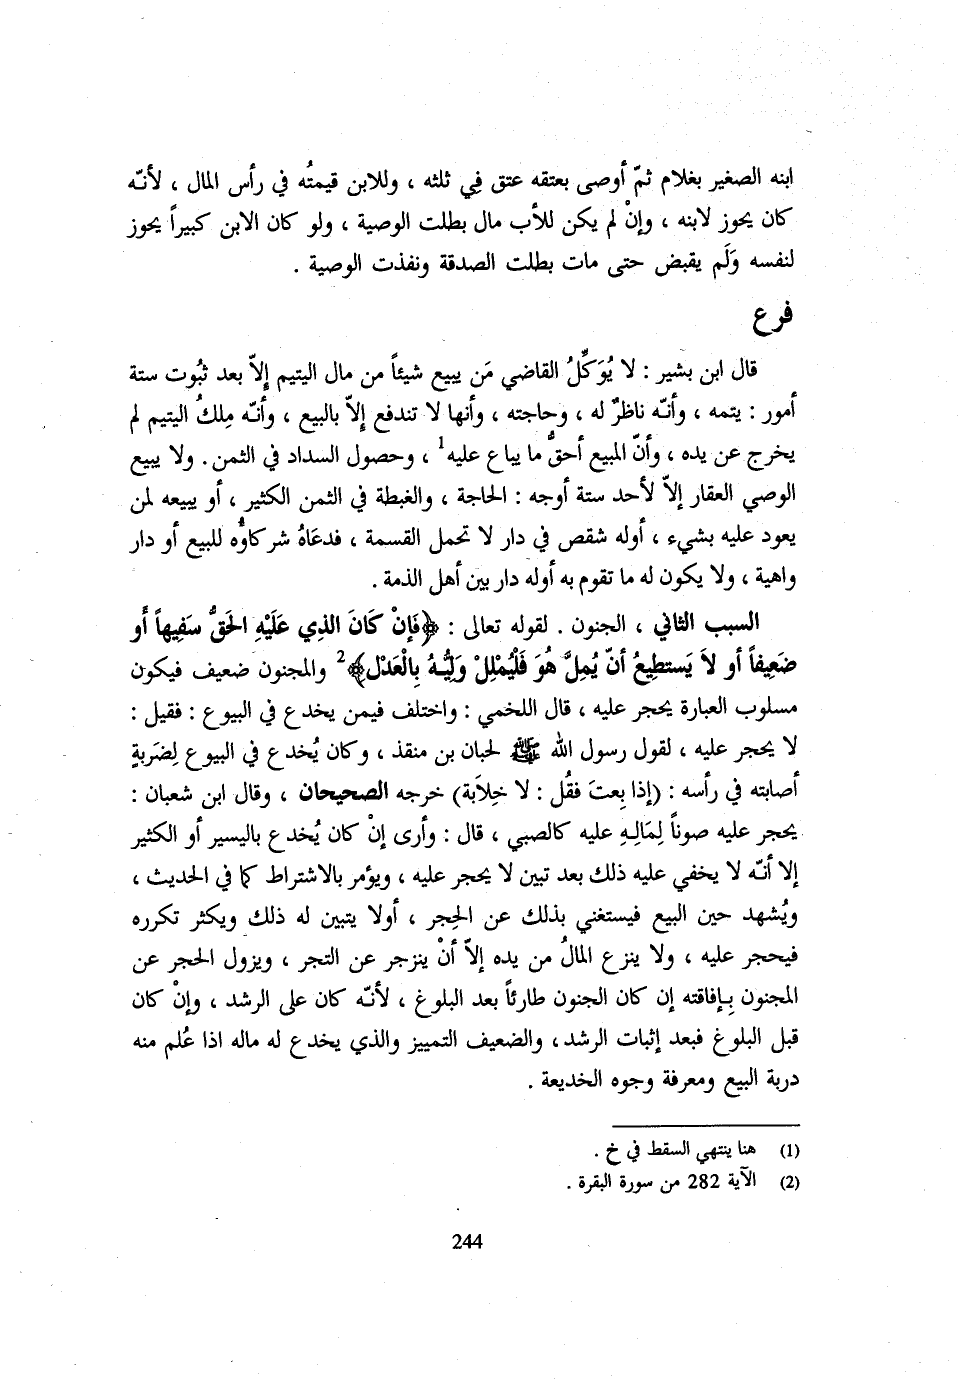 ابنه الصغير بغلام ثمّ أوصى بعتقه عتق فِي ثلثه ، وللابن قيمتُه في رأس المال ، لأنّه
كان يحوز لابنه ، وإنْ لم يكن للأب مال بطلت الوصية ، ولو كان الابن كبيراً يحوز
لنفسه وَلَم يقبض حتى مات بطلت الصدقة ونفذت الوصية .
فرع
قال ابن بشير : لا يُوَكِّلُ القاضي مَن يبيع شيئاً من مال اليتيم إلاّ بعد ثبُوت ستة
أمور : يتمه ، وأنّه ناظرٌ له ، وحاجته ، وأنها لا تندفع إلاّ بالبيع ، وأنّه مِلكُ اليتيم لم
يخرج عن يده ، وأنّ المبيع أحقُّ ما يباع عليه1 ، وحصول السداد في الثمن . ولا يبيع
الوصي العقار إلاّ لأحد ستة أوجه : الحاجة ، والغبطة في الثمن الكثير ، أو يبيعه لمن
يعود عليه بشيء ، أوله شقص في دار لا تحمل القسمة ، فدعَاهُ شركاوُّه للبيع أو دار
واهية ، ولا يكون له ما تقوم به أوله دار بين أهل الذمة .
السبب الثاني ، الجنون . لقوله تعالى : ﴿فَإِنْ كَانَ الذِي عَلَيْهِ الحَقُّ سَفِيهاً أَو
ضَعِيفاً أو لاَ يَستطِيعُ أنّ يُمِلَّ هُوَ فَلْيُمْلِلْ وَلِيُّـهُ بِالْعَدْل﴾2 والمجنون ضعيف فيكون
مسلوب العبارة يحجر عليه ، قال اللخمي : واختلف فيمن يخدع في البيوع : فقيل :
لا يحجر عليه ، لقول رسول الله ﷺ لحبان بن منقذ ، وكان يُخدع في البيوع لِضَربةٍ
أصابته في رأسه : (إذا بِعتَ فقُل : لا خِلاَبة) خرجه الصحيحان ، وقال ابن شعبان :
يحجر عليه صوناً لِمَالِهِ عليه كالصبي ، قال : وأرى إنْ كان يُخدع باليسير أو الكثير
إلا أنّه لا يخفي عليه ذلك بعد تبين لا يحجر عليه ، ويؤمر بالاشتراط كما في الحديث ،
ويُشهد حين البيع فيستغني بذلك عن الحِجر ، أولا يتبين له ذلك ويكثر تكرره
فيحجر عليه ، ولا ينزع المالُ من يده إلاّ أنْ ينزجر عن التجر ، ويزول الحجر عن
المجنون بِإفاقته إن كان الجنون طارئاً بعد البلوغ ، لأنّه كان على الرشد ، وإنْ كان
قبل البلوغ فبعد إثبات الرشد ، والضعيف التمييز والذي يخدع له ماله اذا عُلم منه
دربة البيع ومعرفة وجوه الخديعة .
(1) هنا ينتهي السقط في خ .
(2) الآية 282 من سورة البقرة .
244